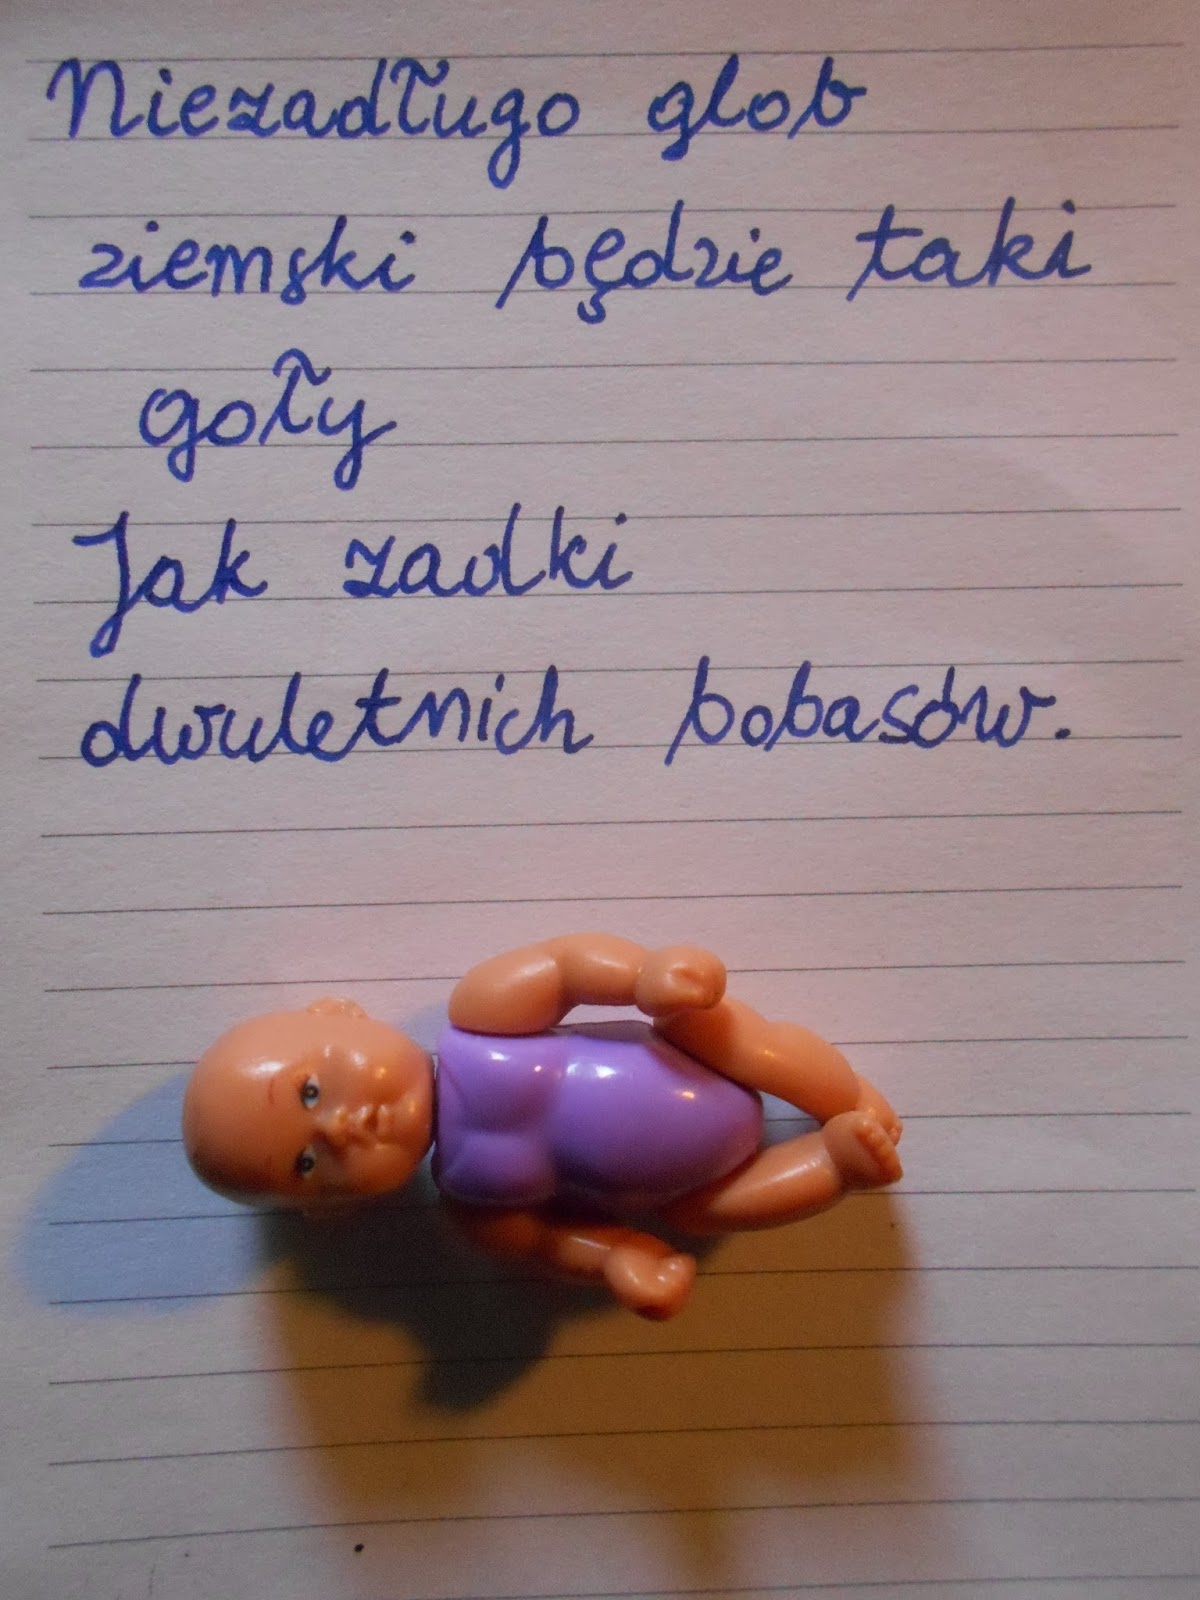 Niezadługo glob
ziemski będzie taki
goły
Jak zadki
dwuletnich bobasów.